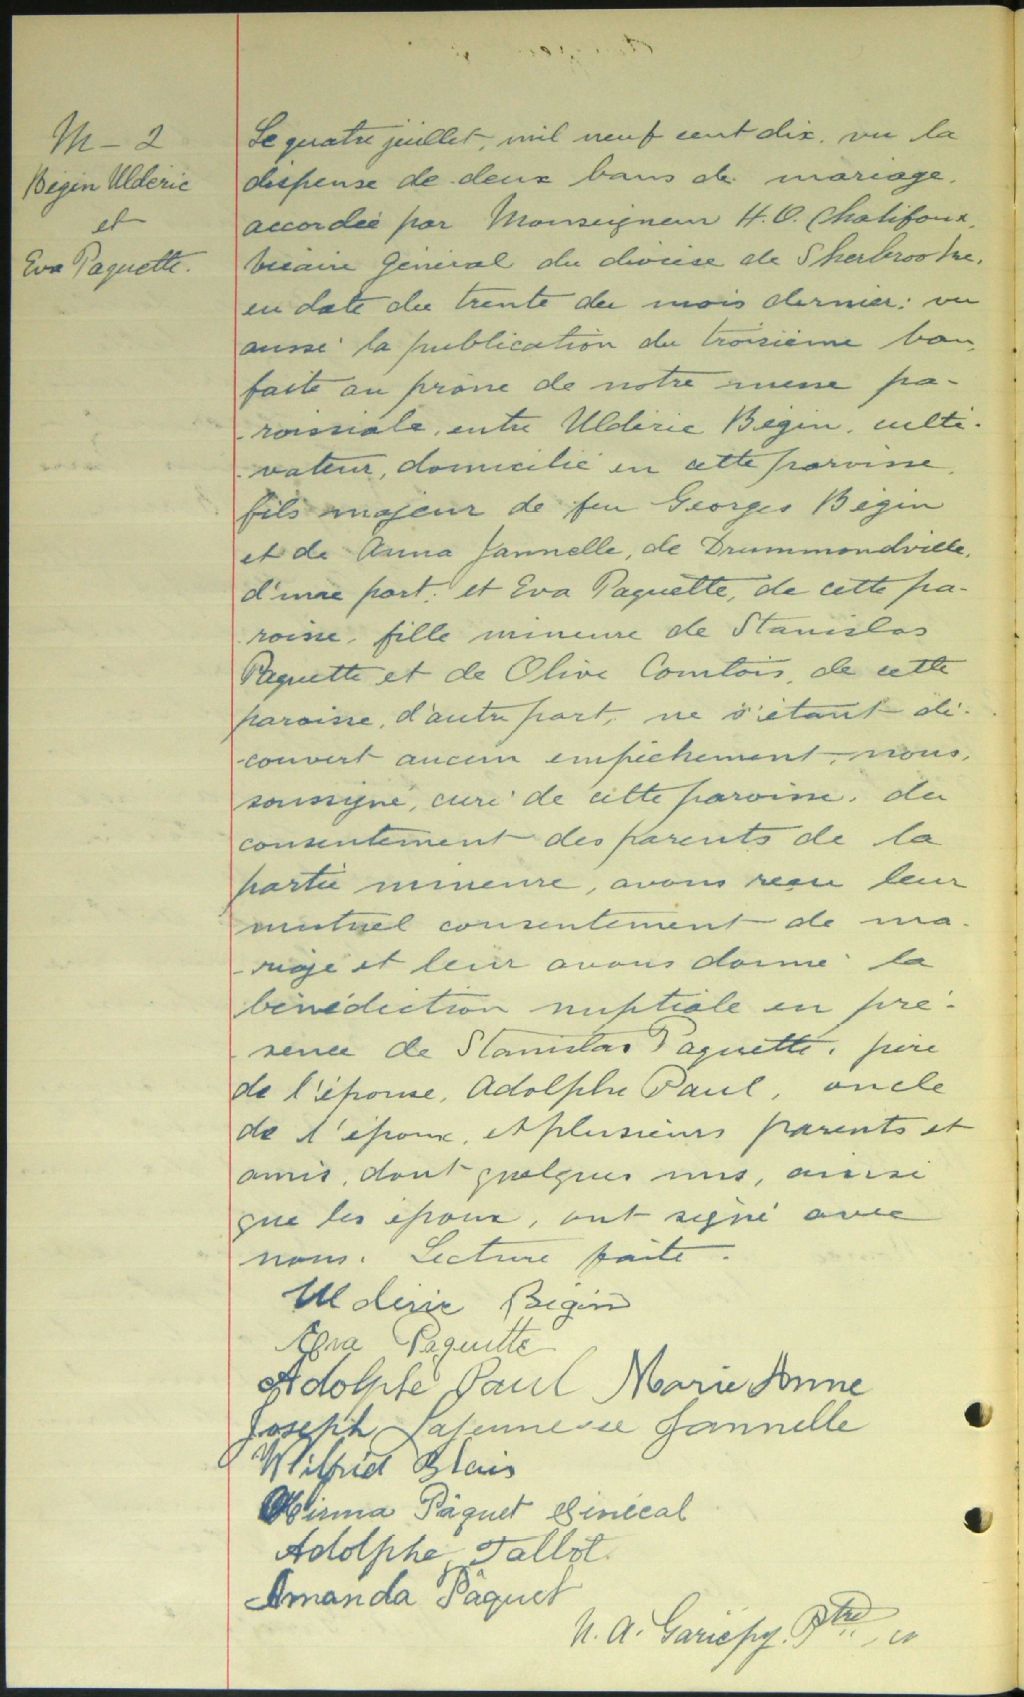 M-2
Bégin Uldéric
et
Eva Paquette.
Le quatre juillet, mil neuf cent dix, vu la
dispense de deux bans de mariage,
accordée par Monseigneur H. O. Chalifoux,
vicaire général du diocèse de Sherbrooke,
en date du trente du mois dernier; vu
aussi la publication du troisième ban,
faite au prône de notre messe pa-
-roissiale, entre Uldéric Bégin, culti-
-vateur, domicilié en cette paroisse,
fils majeur de feu Georges Bégin
et de Anna Jannelle, de Drummondville,
d'une part; et Eva Paquette, de cette pa-
-roisse, fille mineure de Stanislas
Paquette et de Olive Comtois, de cette
paroisse, d'autre part, ne s'étant dé-
-couvert aucun empêchement, nous,
soussigné, curé de cette paroisse, du
consentement des parents de la
partie mineure, avons reçu leur
mutuel consentement de ma-
-riage et leur avons donné la
bénédiction nuptiale en pré-
-sence de Stanislas Paquette, père
de l'épouse, Adolphe Paul, oncle
de l'époux, et plusieurs parents et
amis, dont quelques uns, ainsi
que les époux, ont signé avec
nous. Lecture faite.
Uldéric Bégin
Eva Paquette
Adolphe Paul Marie Anne
Joseph Lajeunesse Jannelle
Wilfrid Blais
Paquet Sénécal
Adolphe Tallot
Amanda Pâquet
N. A. Gariépy. Ptre